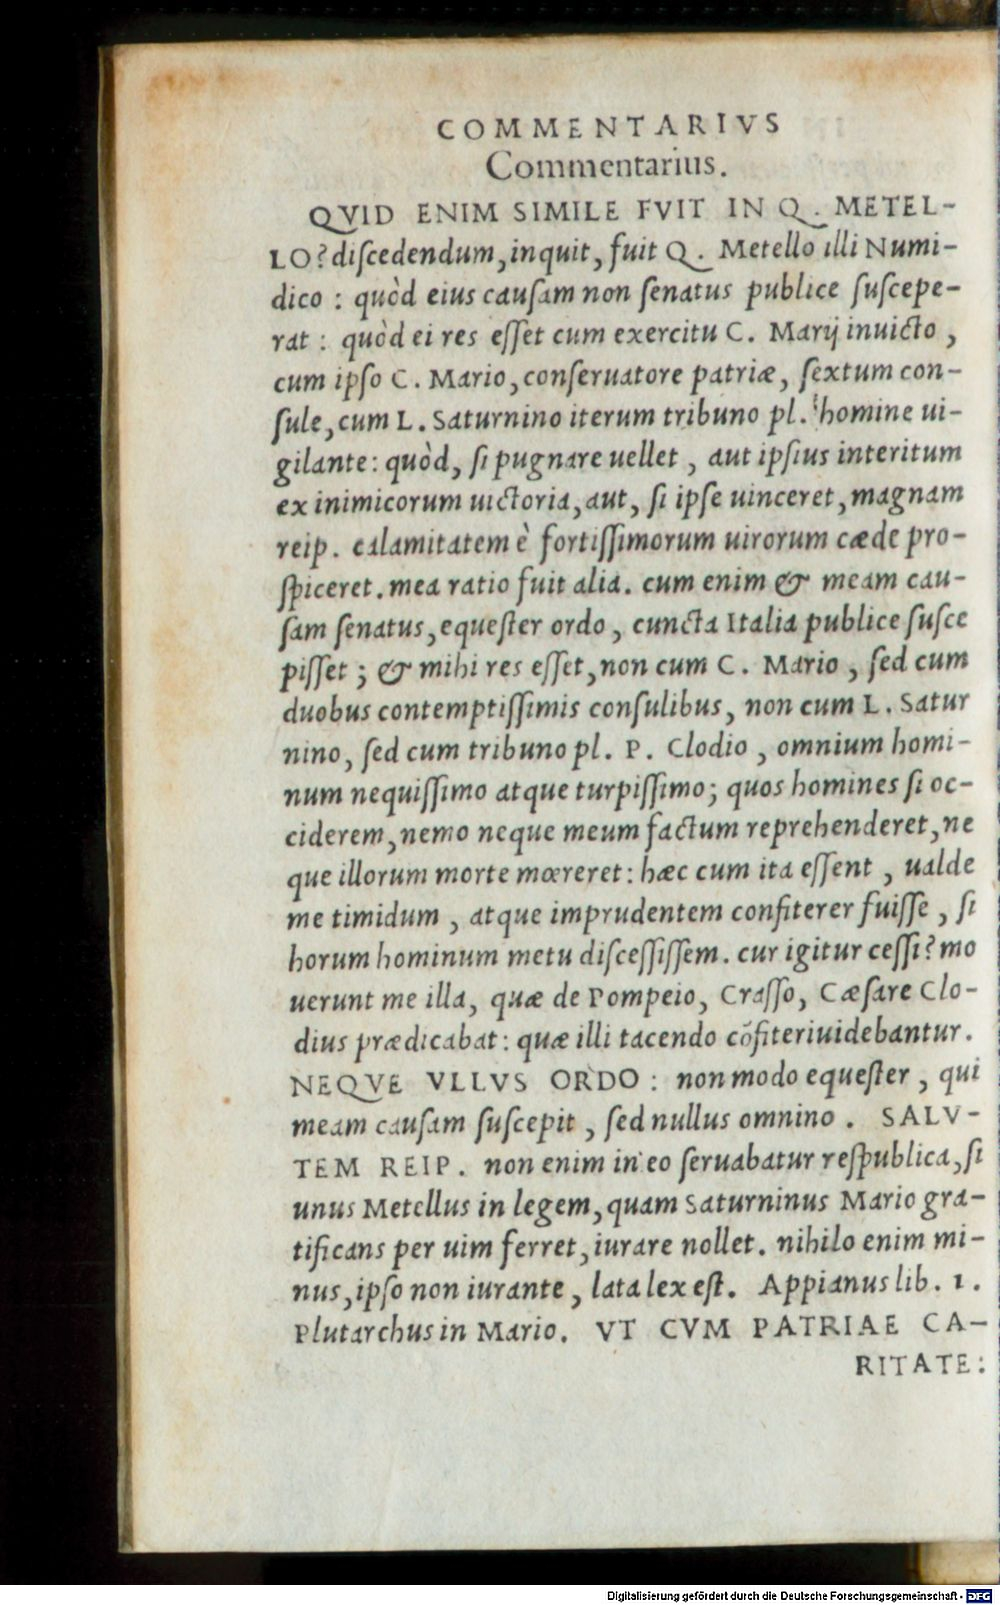 COMMENTARIVS
Commentarius.
QVID ENIM SIMILE FVIT IN Q. METEL-
LO? diſcedendum, inquit, fuit Q. Metello illi Numi-
dico : quòd eius cauſam non ſenatus publice ſuſcepe-
rat : quòd ei res eſſet cum exercitu C. Marij inuicto ,
cum ipſo C. Mario, conſeruatore patriæ, ſextum con-
ſule, cum L. Saturnino iterum tribuno pl. homine ui-
gilante: quòd, ſi pugnare uellet , aut ipſius interitum
ex inimicorum uictoria, aut, ſi ipſe uinceret, magnam
reip. calamitatem è fortiſſimorum uirorum cæde pro-
ſpiceret. mea ratio fuit alia. cum enim & meam cau-
ſam ſenatus, equeſter ordo , cuncta Italia publice ſuſce
piſſet ; & mihi res eſſet, non cum C. Mario , ſed cum
duobus contemptiſſimis conſulibus, non cum L. Satur
nino, ſed cum tribuno pl. P. Clodio , omnium homi-
num nequiſſimo atque turpiſſimo; quos homines ſi oc-
ciderem, nemo neque meum factum reprehenderet, ne
que illorum morte mœreret: hæc cum ita eſſent , ualde
me timidum , atque imprudentem confiterer fuiſſe , ſi
horum hominum metu diſceſſiſſem. cur igitur ceſſi? mo
uerunt me illa, quæ de Pompeio, Craſſo, Cæſare Clo-
dius prædicabat: quæ illi tacendo cōfiteriuidebantur.
NEQVE VLLVS ORDO : non modo equeſter , qui
meam cauſam ſuſcepit , ſed nullus omnino . SALV-
TEM REIP. non enim in eo ſeruabatur reſpublica, ſi
unus Metellus in legem, quam Saturninus Mario gra-
tificans per uim ferret, iurare nollet. nihilo enim mi-
nus, ipſo non iurante , lata lex eſt. Appianus lib. 1.
Plutarchus in Mario. VT CVM PATRIAE CA-
RITATE:
Digitalisierung gefördert durch die Deutsche Forschungsgemeinschaft - DFG